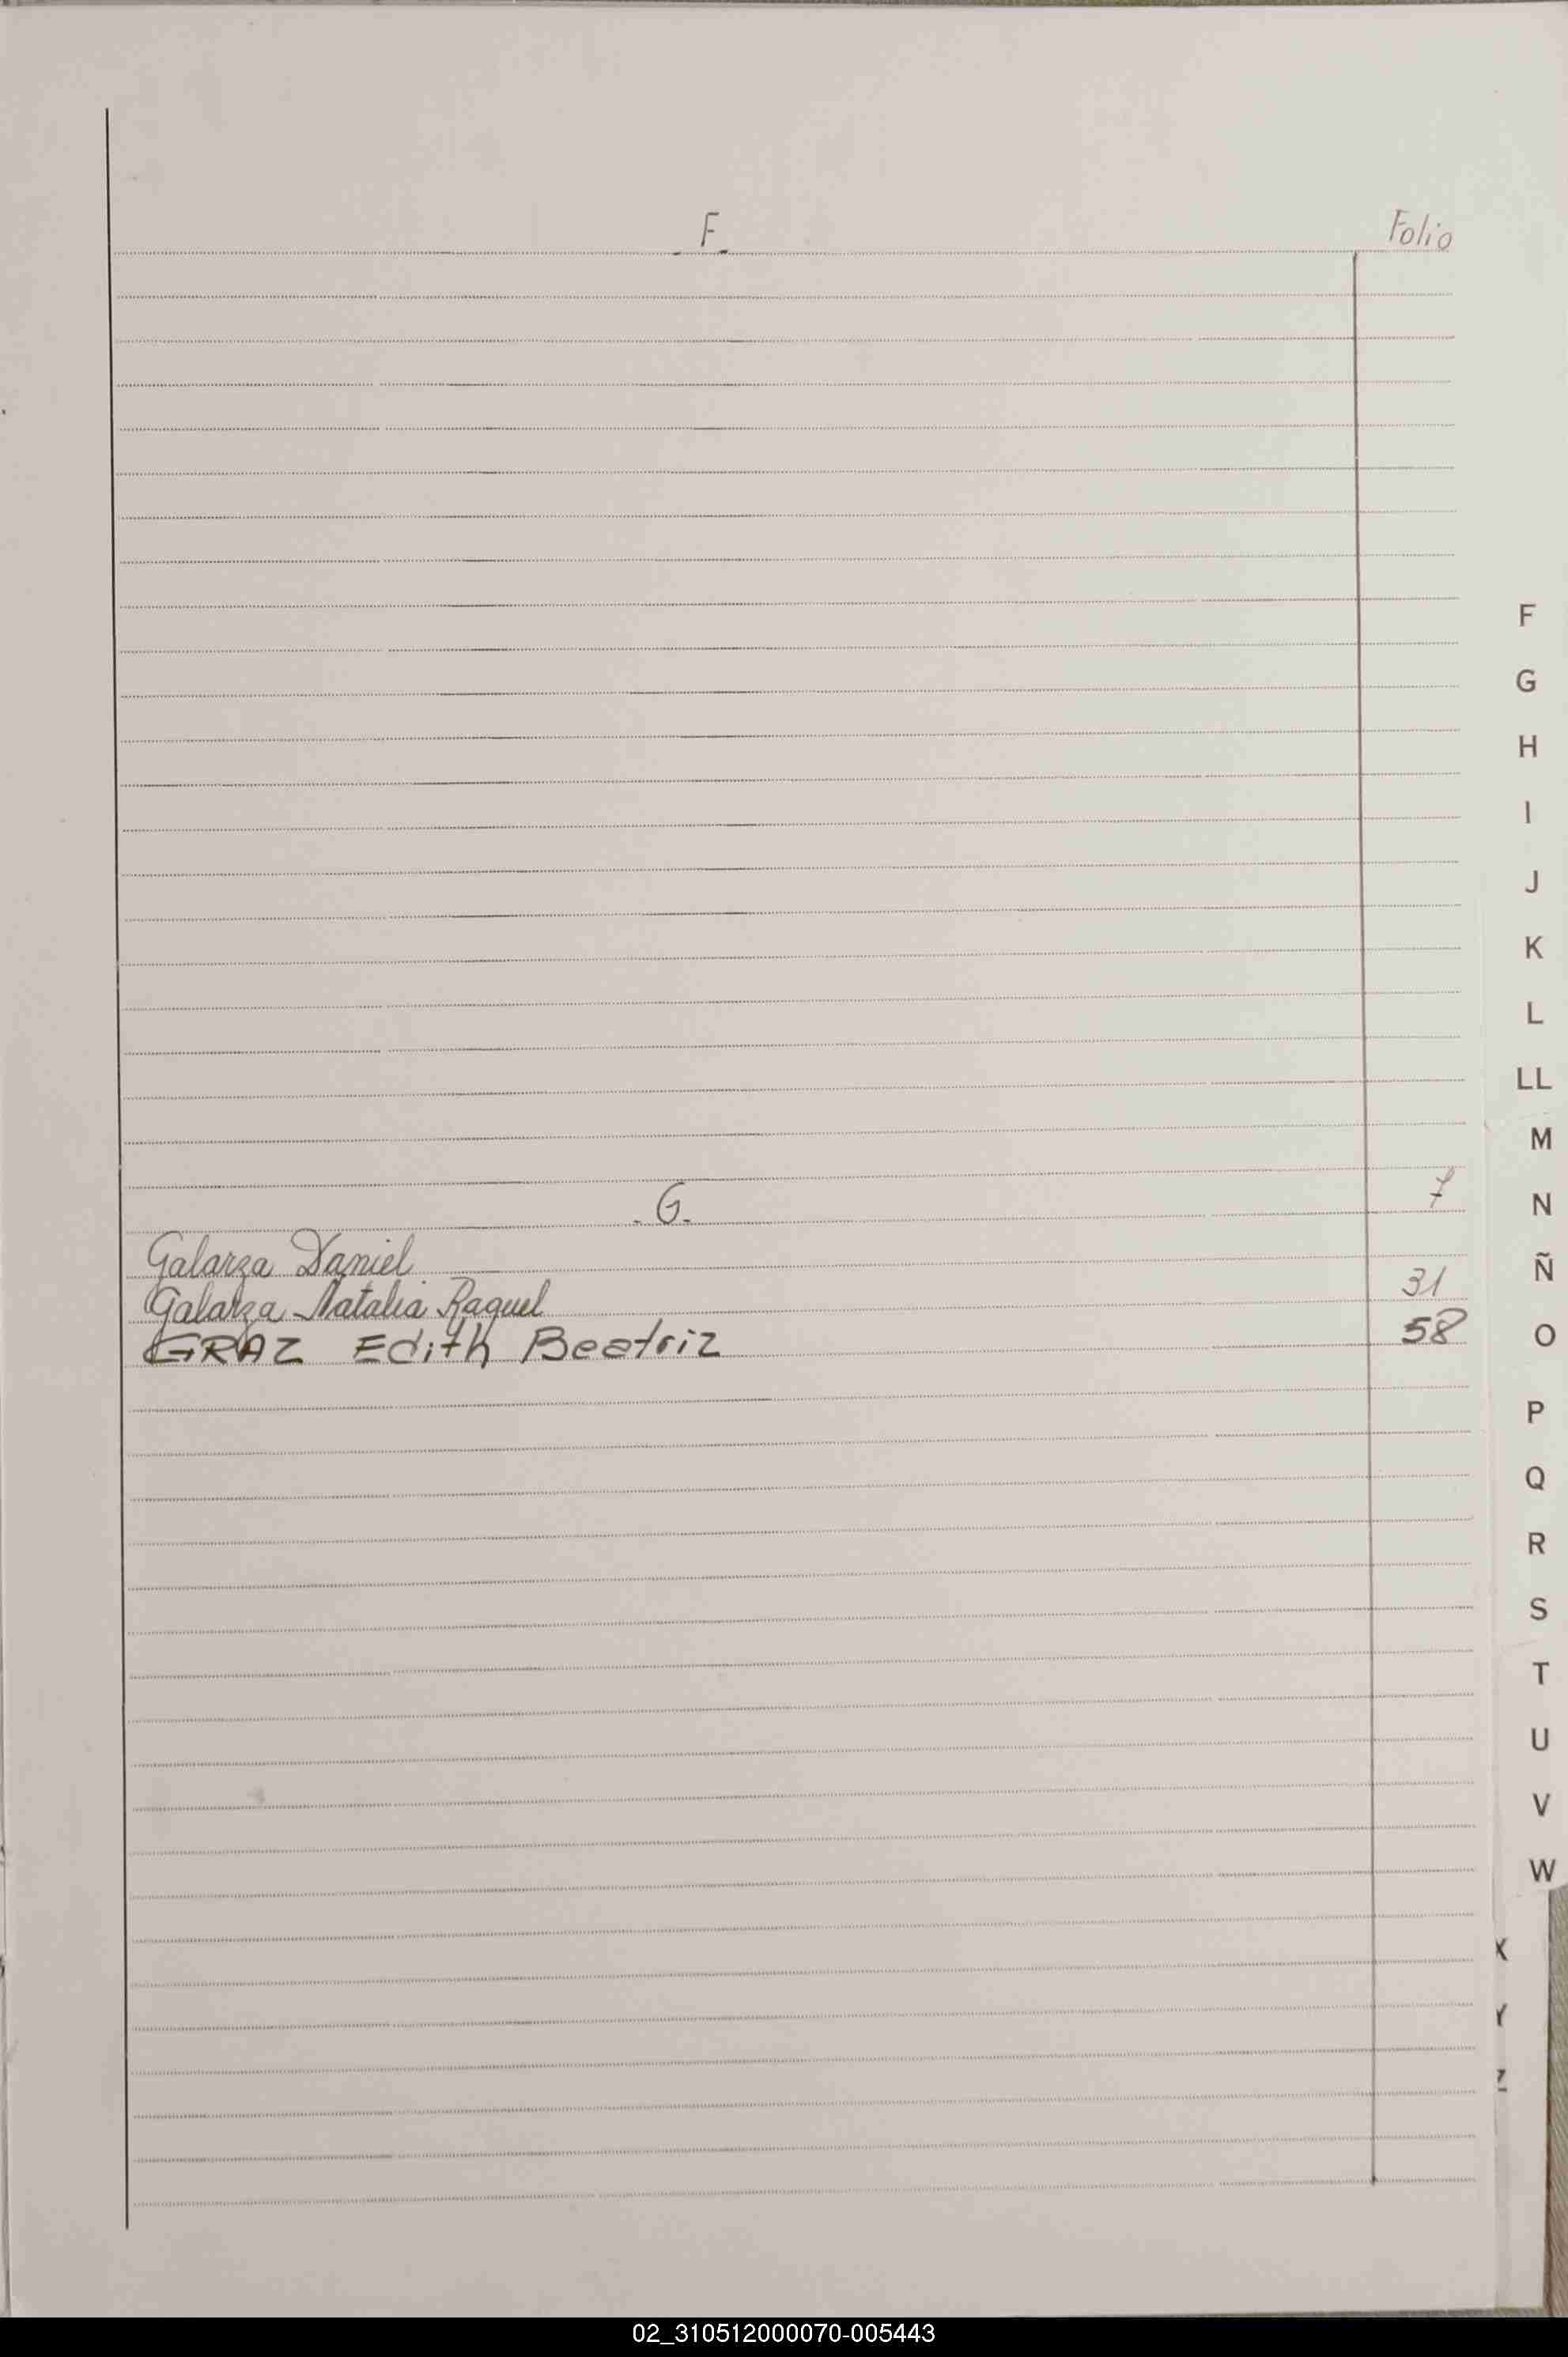 F.
Folio
.G.
7
Galarza Daniel
Galarza Natalia Raquel 31
GRAZ Edith Beatriz 58
F
G
H
I
J
K
L
LL
M
N
Ñ
O
P
Q
R
S
T
U
V
W
X
Y
Z
02_310512000070-005443